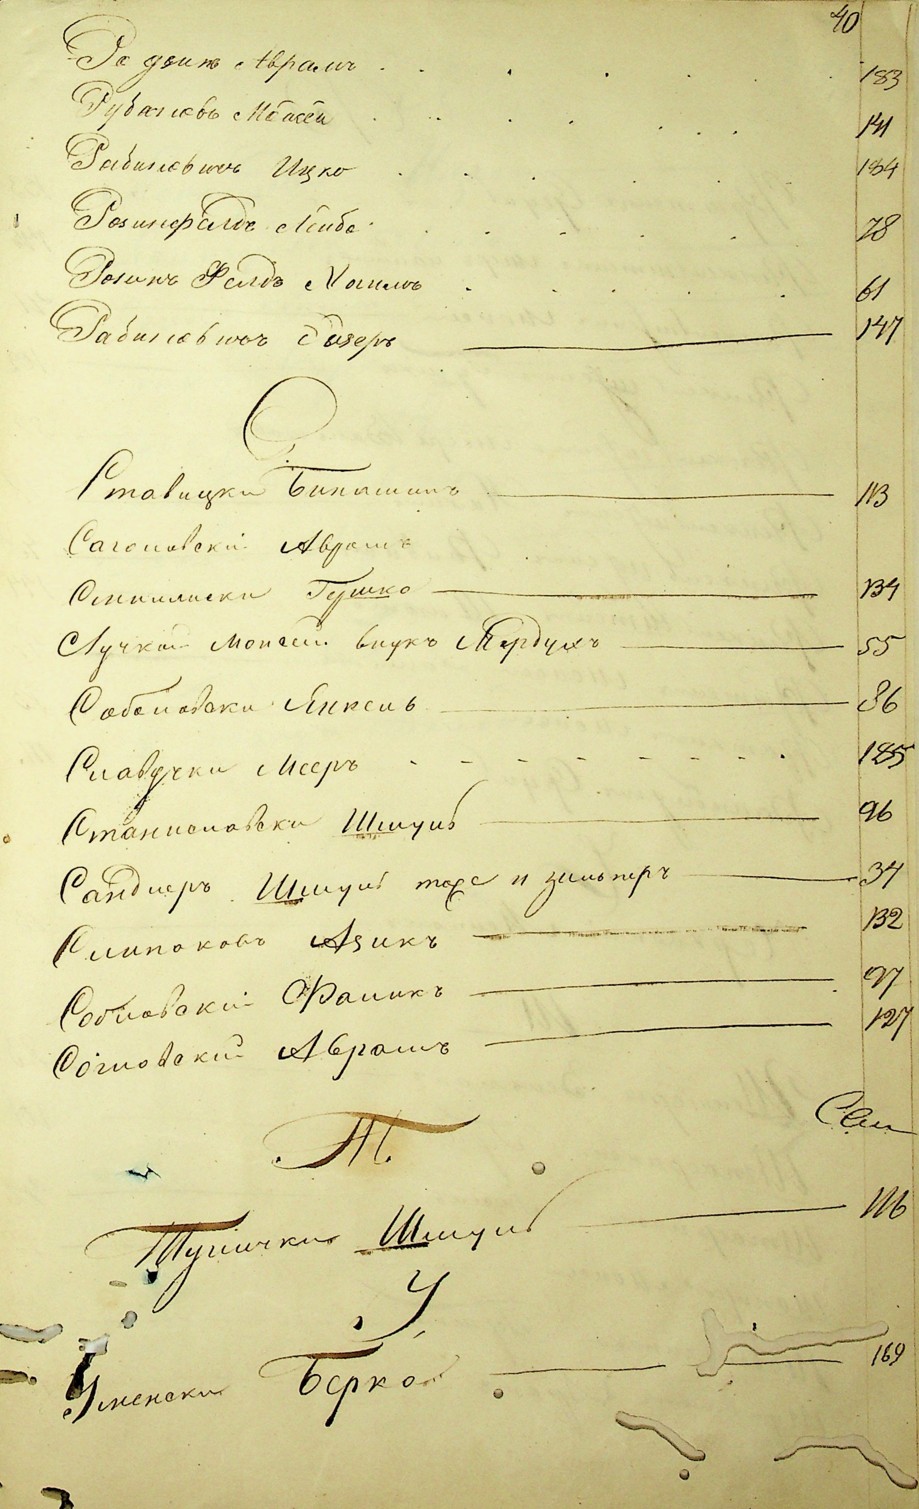 40
Авраамъ 183
Рубановъ Мойсей 141
Рабиновичъ Ицко 184
Розинфелдъ Лейба 78
Розинъ Фелдъ Хаимъ 61
Рабиновичъ Лазеръ 147
С
Ставицки 113
Сагоновский Аврамъ
Гершко 134
Лучкий Моисей внукъ Мардухъ 55
Соболовски Янкель 86
Славучки Мееръ 185
Станиславски Шмуль 96
Сандлеръ Шмуль тоже и зильперъ 34
Слипаковъ Азикъ 132
Соболовский Фаликъ 97
Согновский Аврамъ 127
Т
Тульчки Шмуль 116
У
Уменски Берко 169